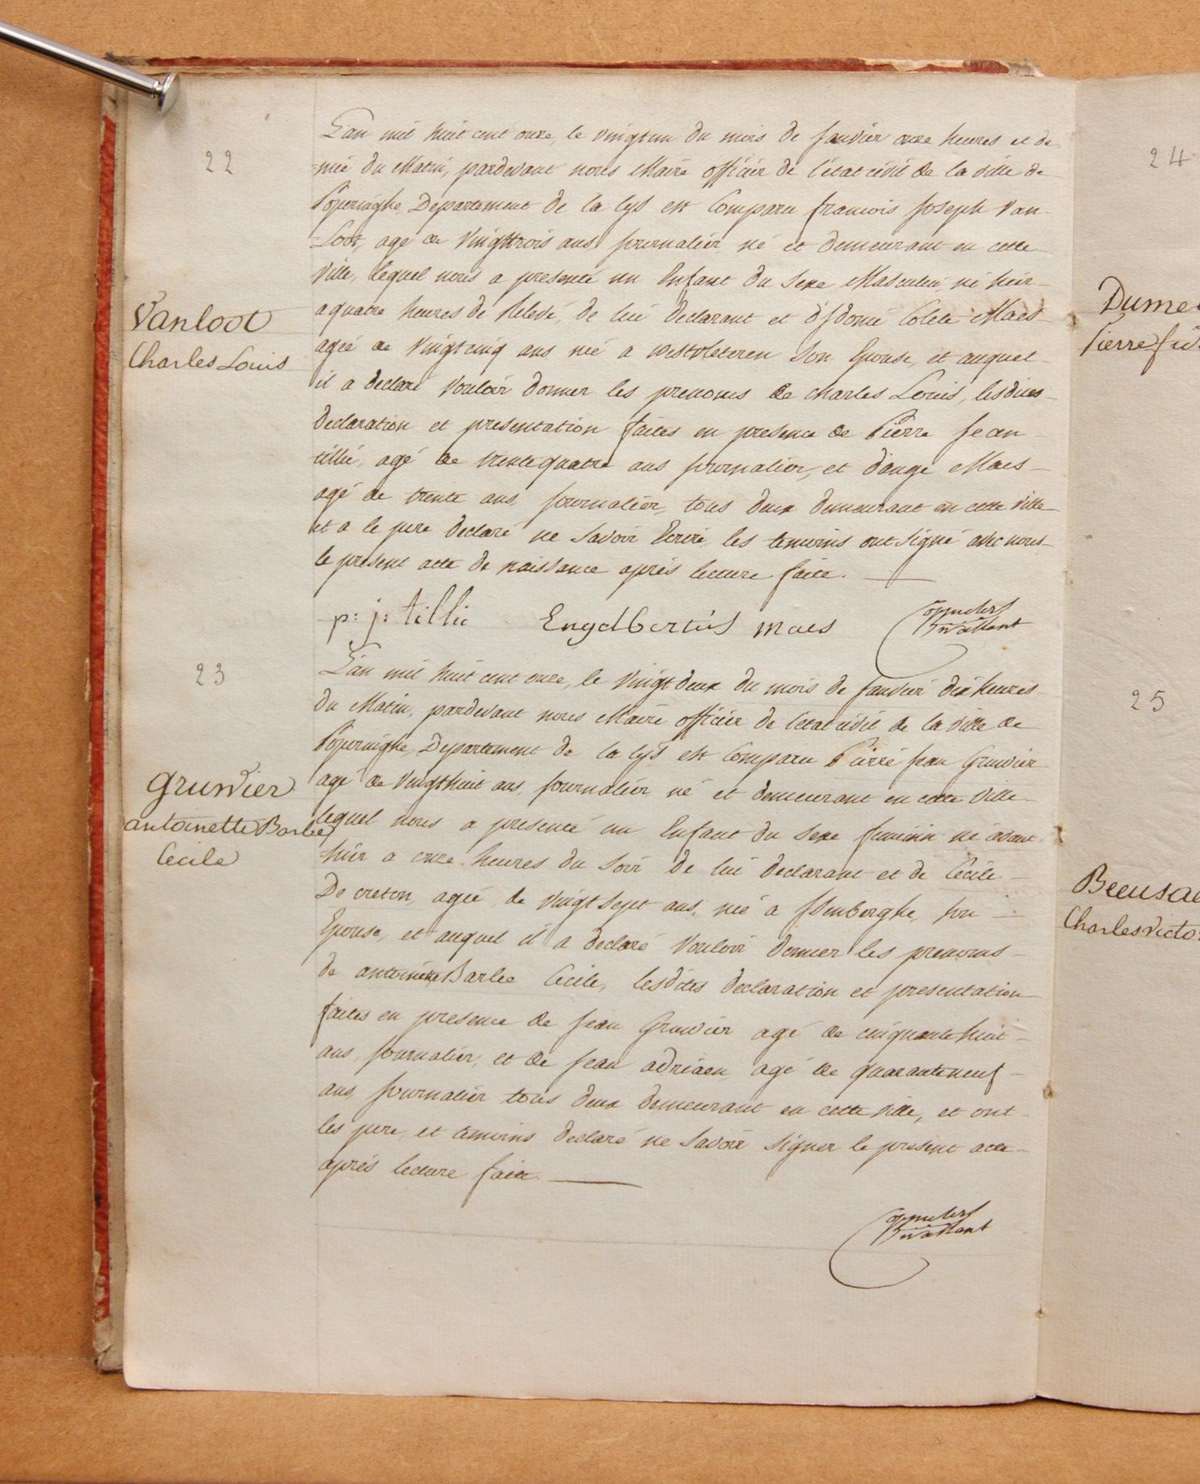 22
L'an mil huit cent onze, le vingtun du mois de Janvier onze heures et de
mie du Matin, pardevant nous Maire officier de l'état civil de la ville de
Poperinghe, Departement de la Lys est Comparu francois Joseph Van
Loot, agé de vingttrois ans journalier, né et demeurant en cette
ville, lequel nous a presenté un Enfant du sexe Masculin né hier
a quatre heures de Relevé, de lui declarant et d'Idonie Colete Maes
agée de vingtcinq ans née a westvleteren Son Epouse, et auquel
il a declaré vouloir donner les prenoms de charles Louis, lesdites
declaration et presentation faites en presence de Pierre Jean
tillie, agé de trentequatre ans journalier, et d'ange Maes
agé de trente ans, journalier, tous deux demeurant en cette ville
et a le pere declaré ne savoir Ecrire, les temoins ont signé avec nous
le present acte de naissance après lecture faite.
Vanloot
Charles Louis
p: j: tillie Engelbertus maes
23
L'an mil huit cent onze, le vingtdeux du mois de Janvier dix heures
du Matin, pardevant nous Maire officier de l'état civil de la ville de
Poperinghe, Departement de la Lys est Comparu Pierre jean Gruwier
agé de vingthuit ans, journalier, né et demeurant en cette ville
lequel nous a presenté un Enfant du sexe feminin né avant
hier a onze heures du soir de lui declarant et de Cécile
De creton, agée de vingtsept ans, née à Isenberghe, son
Epouse, et auquel il a declaré vouloir donner les prenoms
de antoinette Barbe Cecile, lesdites declaration et presentation
faites en presence de jean Gruwier agé de cinquantehuit
ans, journalier, et de jean adriaen agé de quaranteneuf
ans, journalier tous deux demeurant en cette ville, et ont
les pere, et temoins declaré ne savoir signer le present acte
après lecture faite.
gruwier
antoinette Barbe
Cecile
24
Dume
Pierre
25
Beeusae
Charles Victo